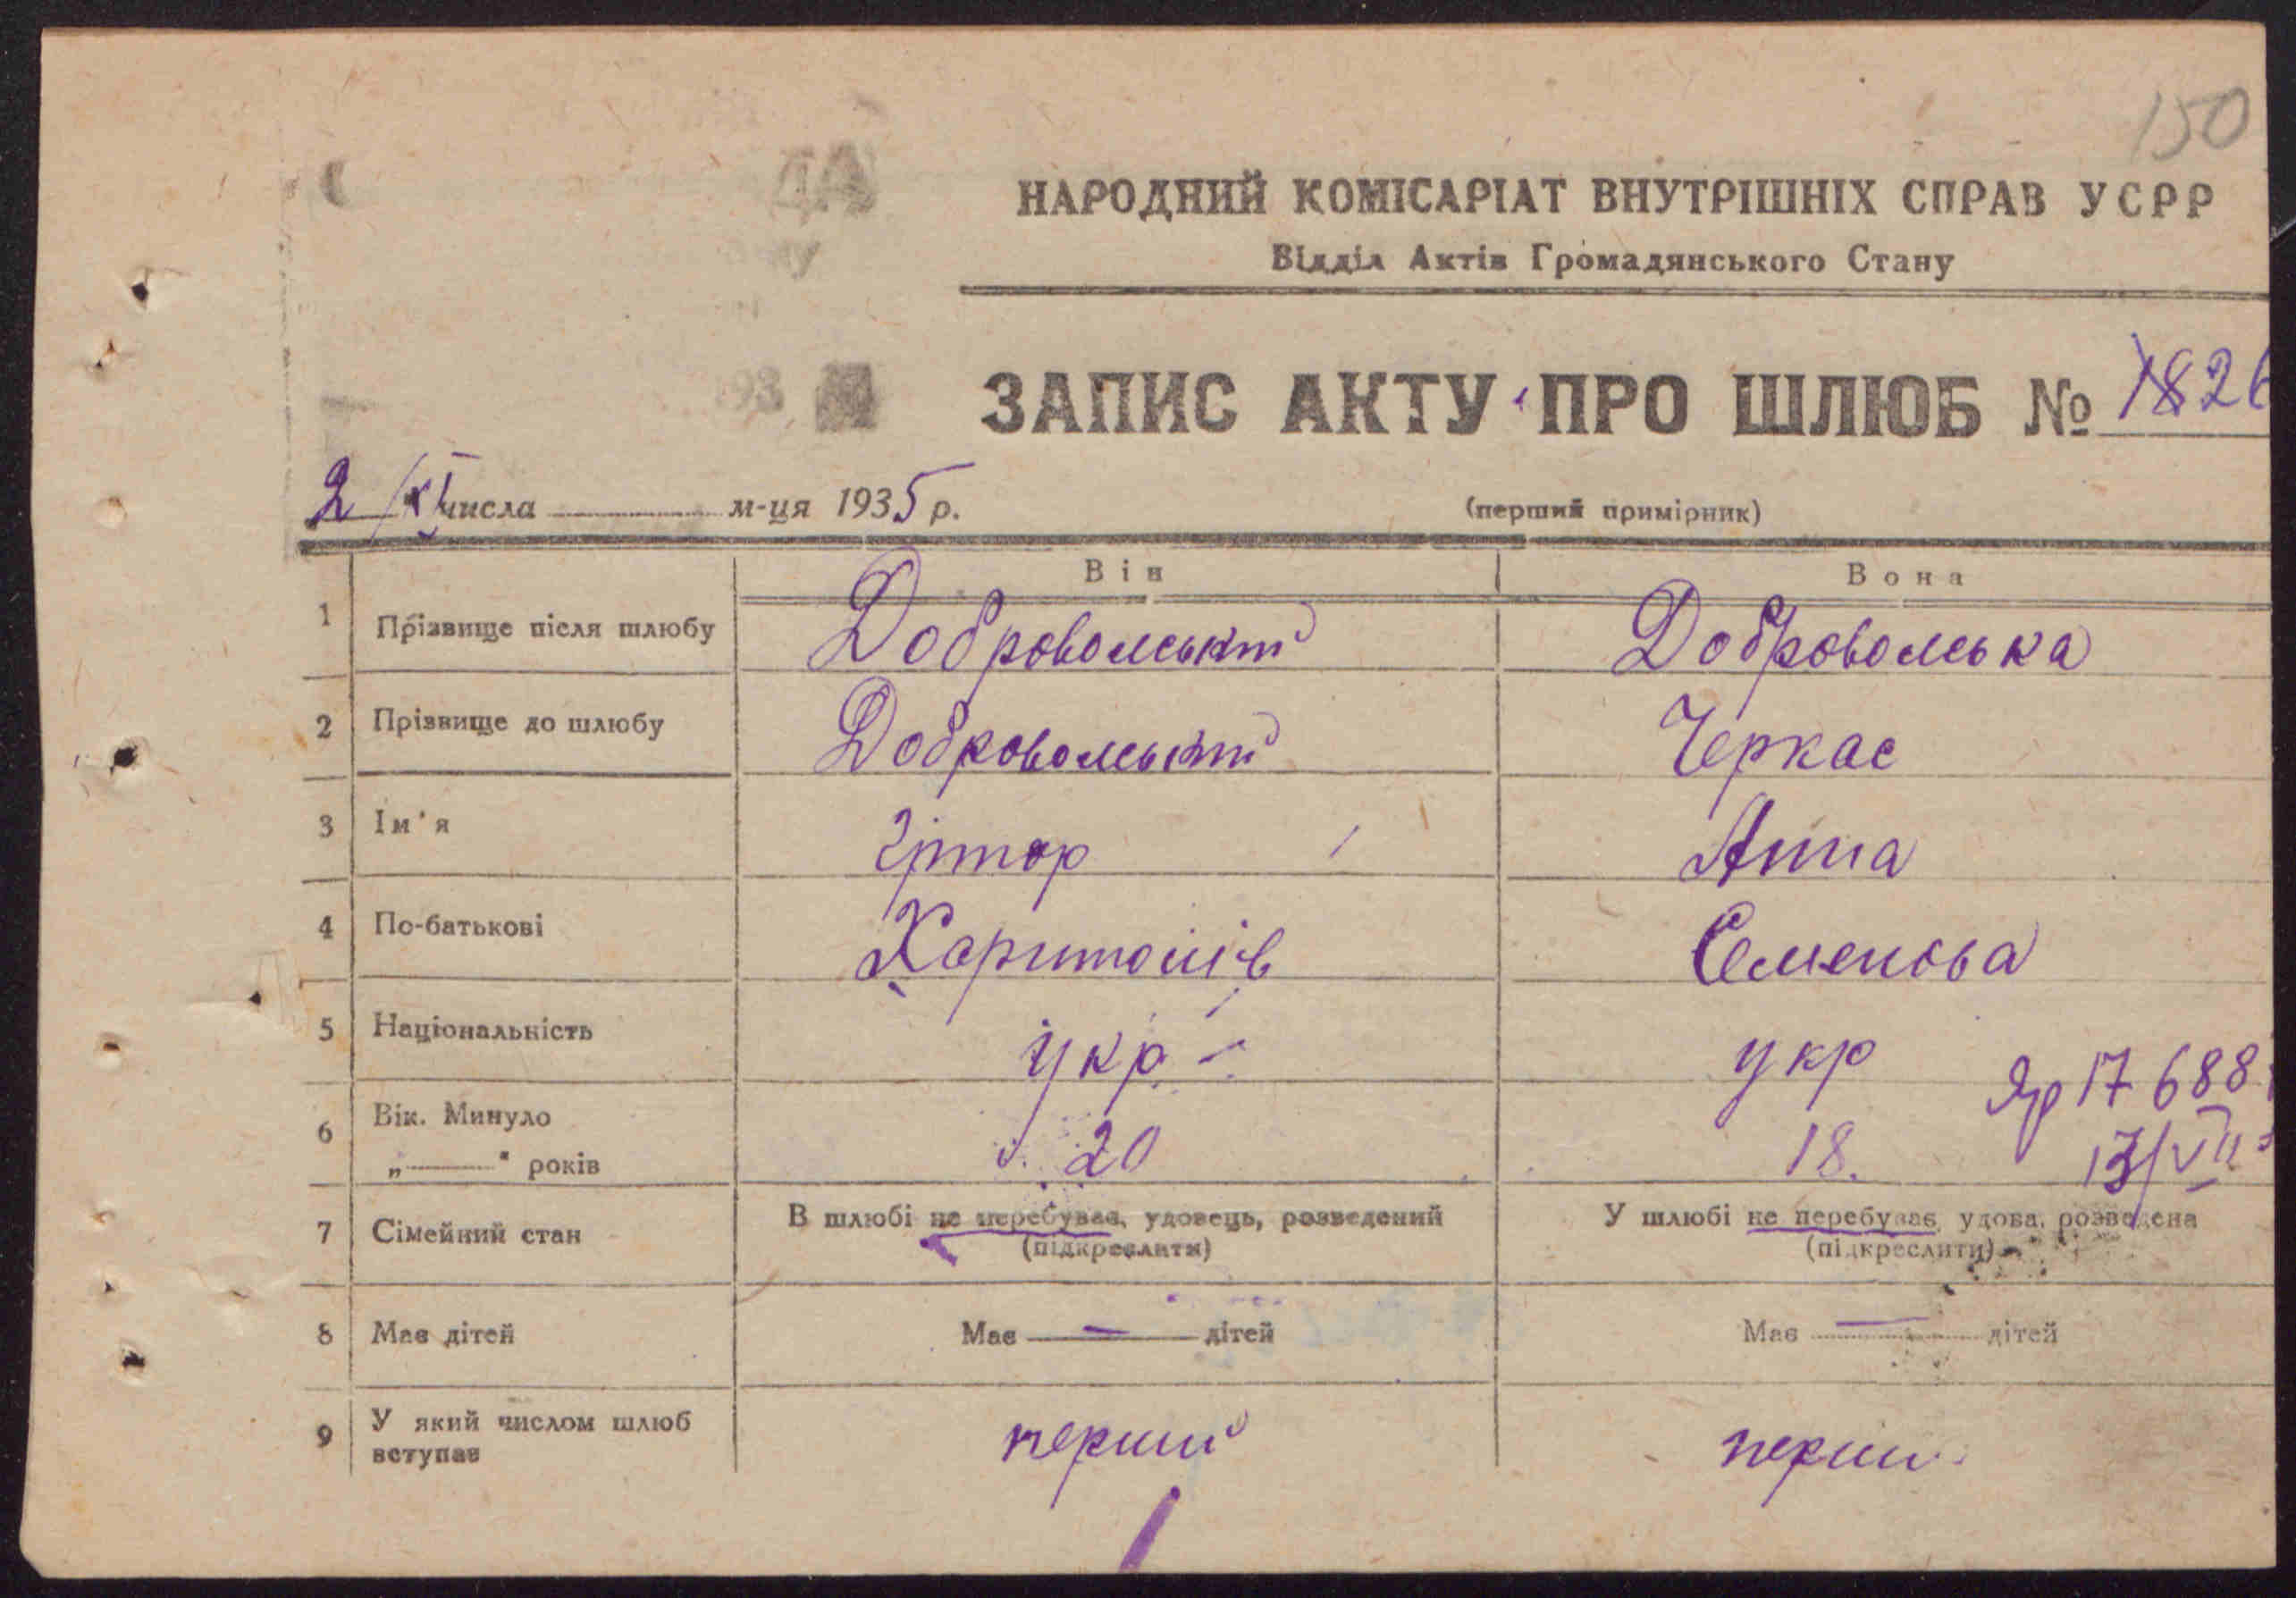 150
НАРОДНИЙ КОМІСАРІАТ ВНУТРІШНІХ СПРАВ УСРР
Відділ Актів Громадянського Стану
ЗАПИС АКТУ ПРО ШЛЮБ № 1826
2/XI числа м-ця 1935 р.
(перший примірник)
Він Вона
1 Прізвище після шлюбу Добровольський Добровольська
2 Прізвище до шлюбу Добровольський Черкас
3 Ім'я Анна
4 По-батькові Харитонів Семенова
5 Національність укр укр
17 688
6 Вік. Минуло „——" років 20 18.
13/VII
7 Сімейний стан В шлюбі не перебуває, удовець, розведений (підкреслити) У шлюбі не перебуває, удова, розведена (підкреслити)
8 Має дітей Має — дітей Має — дітей
9 У який числом шлюб вступає перший перший